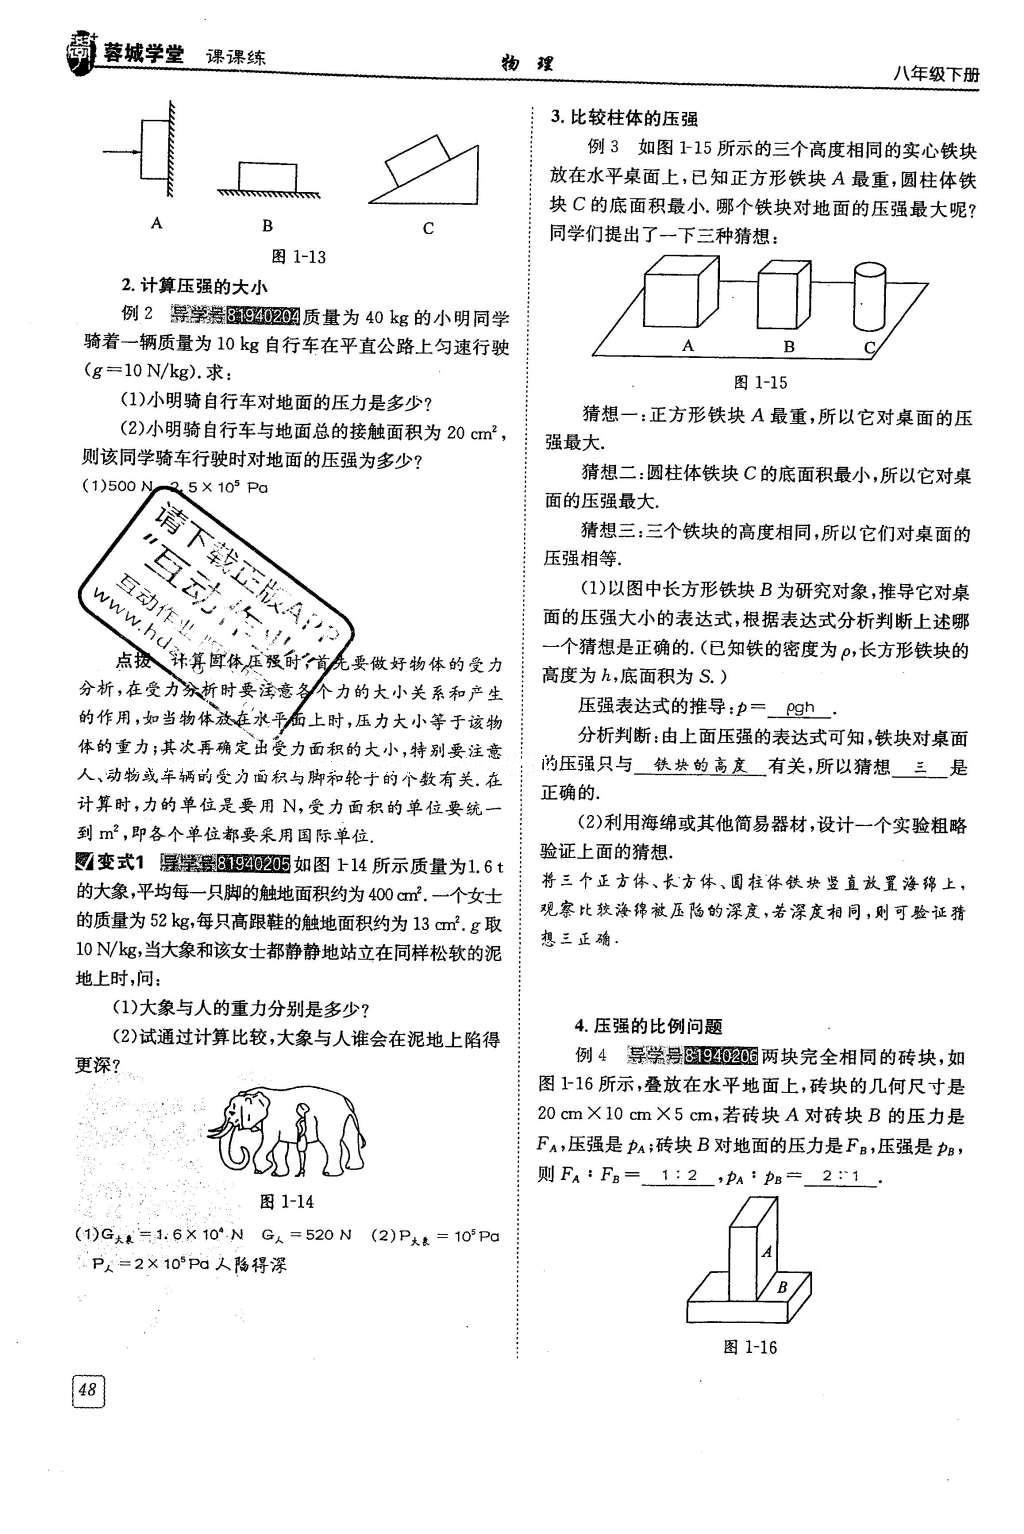 蓉城学堂 课课练
物 理
八年级下册
A
B
C
图 1-13
2. 计算压强的大小
例 2 导学号81940204质量为 40 kg 的小明同学
骑着一辆质量为 10 kg 自行车在平直公路上匀速行驶
(g=10 N/kg). 求:
(1)小明骑自行车对地面的压力是多少?
(2)小明骑自行车与地面总的接触面积为 20 cm²,
则该同学骑车行驶时对地面的压强为多少?
(1)500 N 2.5×10⁵ Pa
请下载正版APP
"互动作业"
互动作业
www.hdz
点拨 计算固体压强时,首先要做好物体的受力
分析,在受力分析时要注意各个力的大小关系和产生
的作用,如当物体放在水平面上时,压力大小等于该物
体的重力;其次再确定出受力面积的大小,特别要注意
人、动物或车辆的受力面积与脚和轮子的个数有关. 在
计算时,力的单位是要用 N,受力面积的单位要统一
到 m²,即各个单位都要采用国际单位.
变式1 导学号81940205如图 1-14 所示质量为1.6 t
的大象,平均每一只脚的触地面积约为 400 cm². 一个女士
的质量为 52 kg,每只高跟鞋的触地面积约为 13 cm². g 取
10 N/kg,当大象和该女士都静静地站立在同样松软的泥
地上时,问:
(1)大象与人的重力分别是多少?
(2)试通过计算比较,大象与人谁会在泥地上陷得
更深?
图 1-14
(1)G大象=1.6×10⁴ N G人=520 N (2)P大象=10⁵Pa
P人=2×10⁵Pa 人陷得深
48
3. 比较柱体的压强
例 3 如图 1-15 所示的三个高度相同的实心铁块
放在水平桌面上,已知正方形铁块 A 最重,圆柱体铁
块 C 的底面积最小. 哪个铁块对地面的压强最大呢?
同学们提出了一下三种猜想:
A
B
C
图 1-15
猜想一:正方形铁块 A 最重,所以它对桌面的压
强最大.
猜想二:圆柱体铁块 C 的底面积最小,所以它对桌
面的压强最大.
猜想三:三个铁块的高度相同,所以它们对桌面的
压强相等.
(1)以图中长方形铁块 B 为研究对象,推导它对桌
面的压强大小的表达式,根据表达式分析判断上述哪
一个猜想是正确的. (已知铁的密度为 ρ,长方形铁块的
高度为 h,底面积为 S. )
压强表达式的推导:p= ρgh .
分析判断:由上面压强的表达式可知,铁块对桌面
的压强只与 铁块的高度 有关,所以猜想 三 是
正确的.
(2)利用海绵或其他简易器材,设计一个实验粗略
验证上面的猜想.
将三个正方体、长方体、圆柱体铁块竖直放置海绵上,
观察比较海绵被压陷的深度,若深度相同,则可验证猜
想三正确.
4. 压强的比例问题
例 4 导学号81940206两块完全相同的砖块,如
图 1-16 所示,叠放在水平地面上,砖块的几何尺寸是
20 cm×10 cm×5 cm,若砖块 A 对砖块 B 的压力是
FA,压强是 pA;砖块 B 对地面的压力是 FB,压强是 pB,
则 FA∶FB= 1∶2 ,pA∶pB= 2∶1 .
A
B
图 1-16